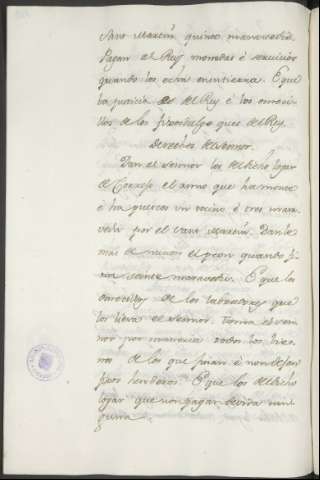 Sant Martin quinze maravedis.
Pagan al Rey monedas é servicios
quando los otros en su tierra. E que
la justicia es del Rey é los omeci-
llos de los fijosdalgo que es del Rey.
Derechos del Señor.
Dan al Señor los del dicho logar
de el anno que ha monte
é ha puercos un tocino é tres mara-
vedis por el Sant Martin. Danle
mas de nuncio el peon quando fi-
na maravedis. E que los
omecillos de los labradores que
los lieva el Señor. Toma el Señor
por maneria todos los bie-
nes de los que finan é non dejan
fijos herederos. E que los del dicho
logar que non pagan devisa nin-
guna.